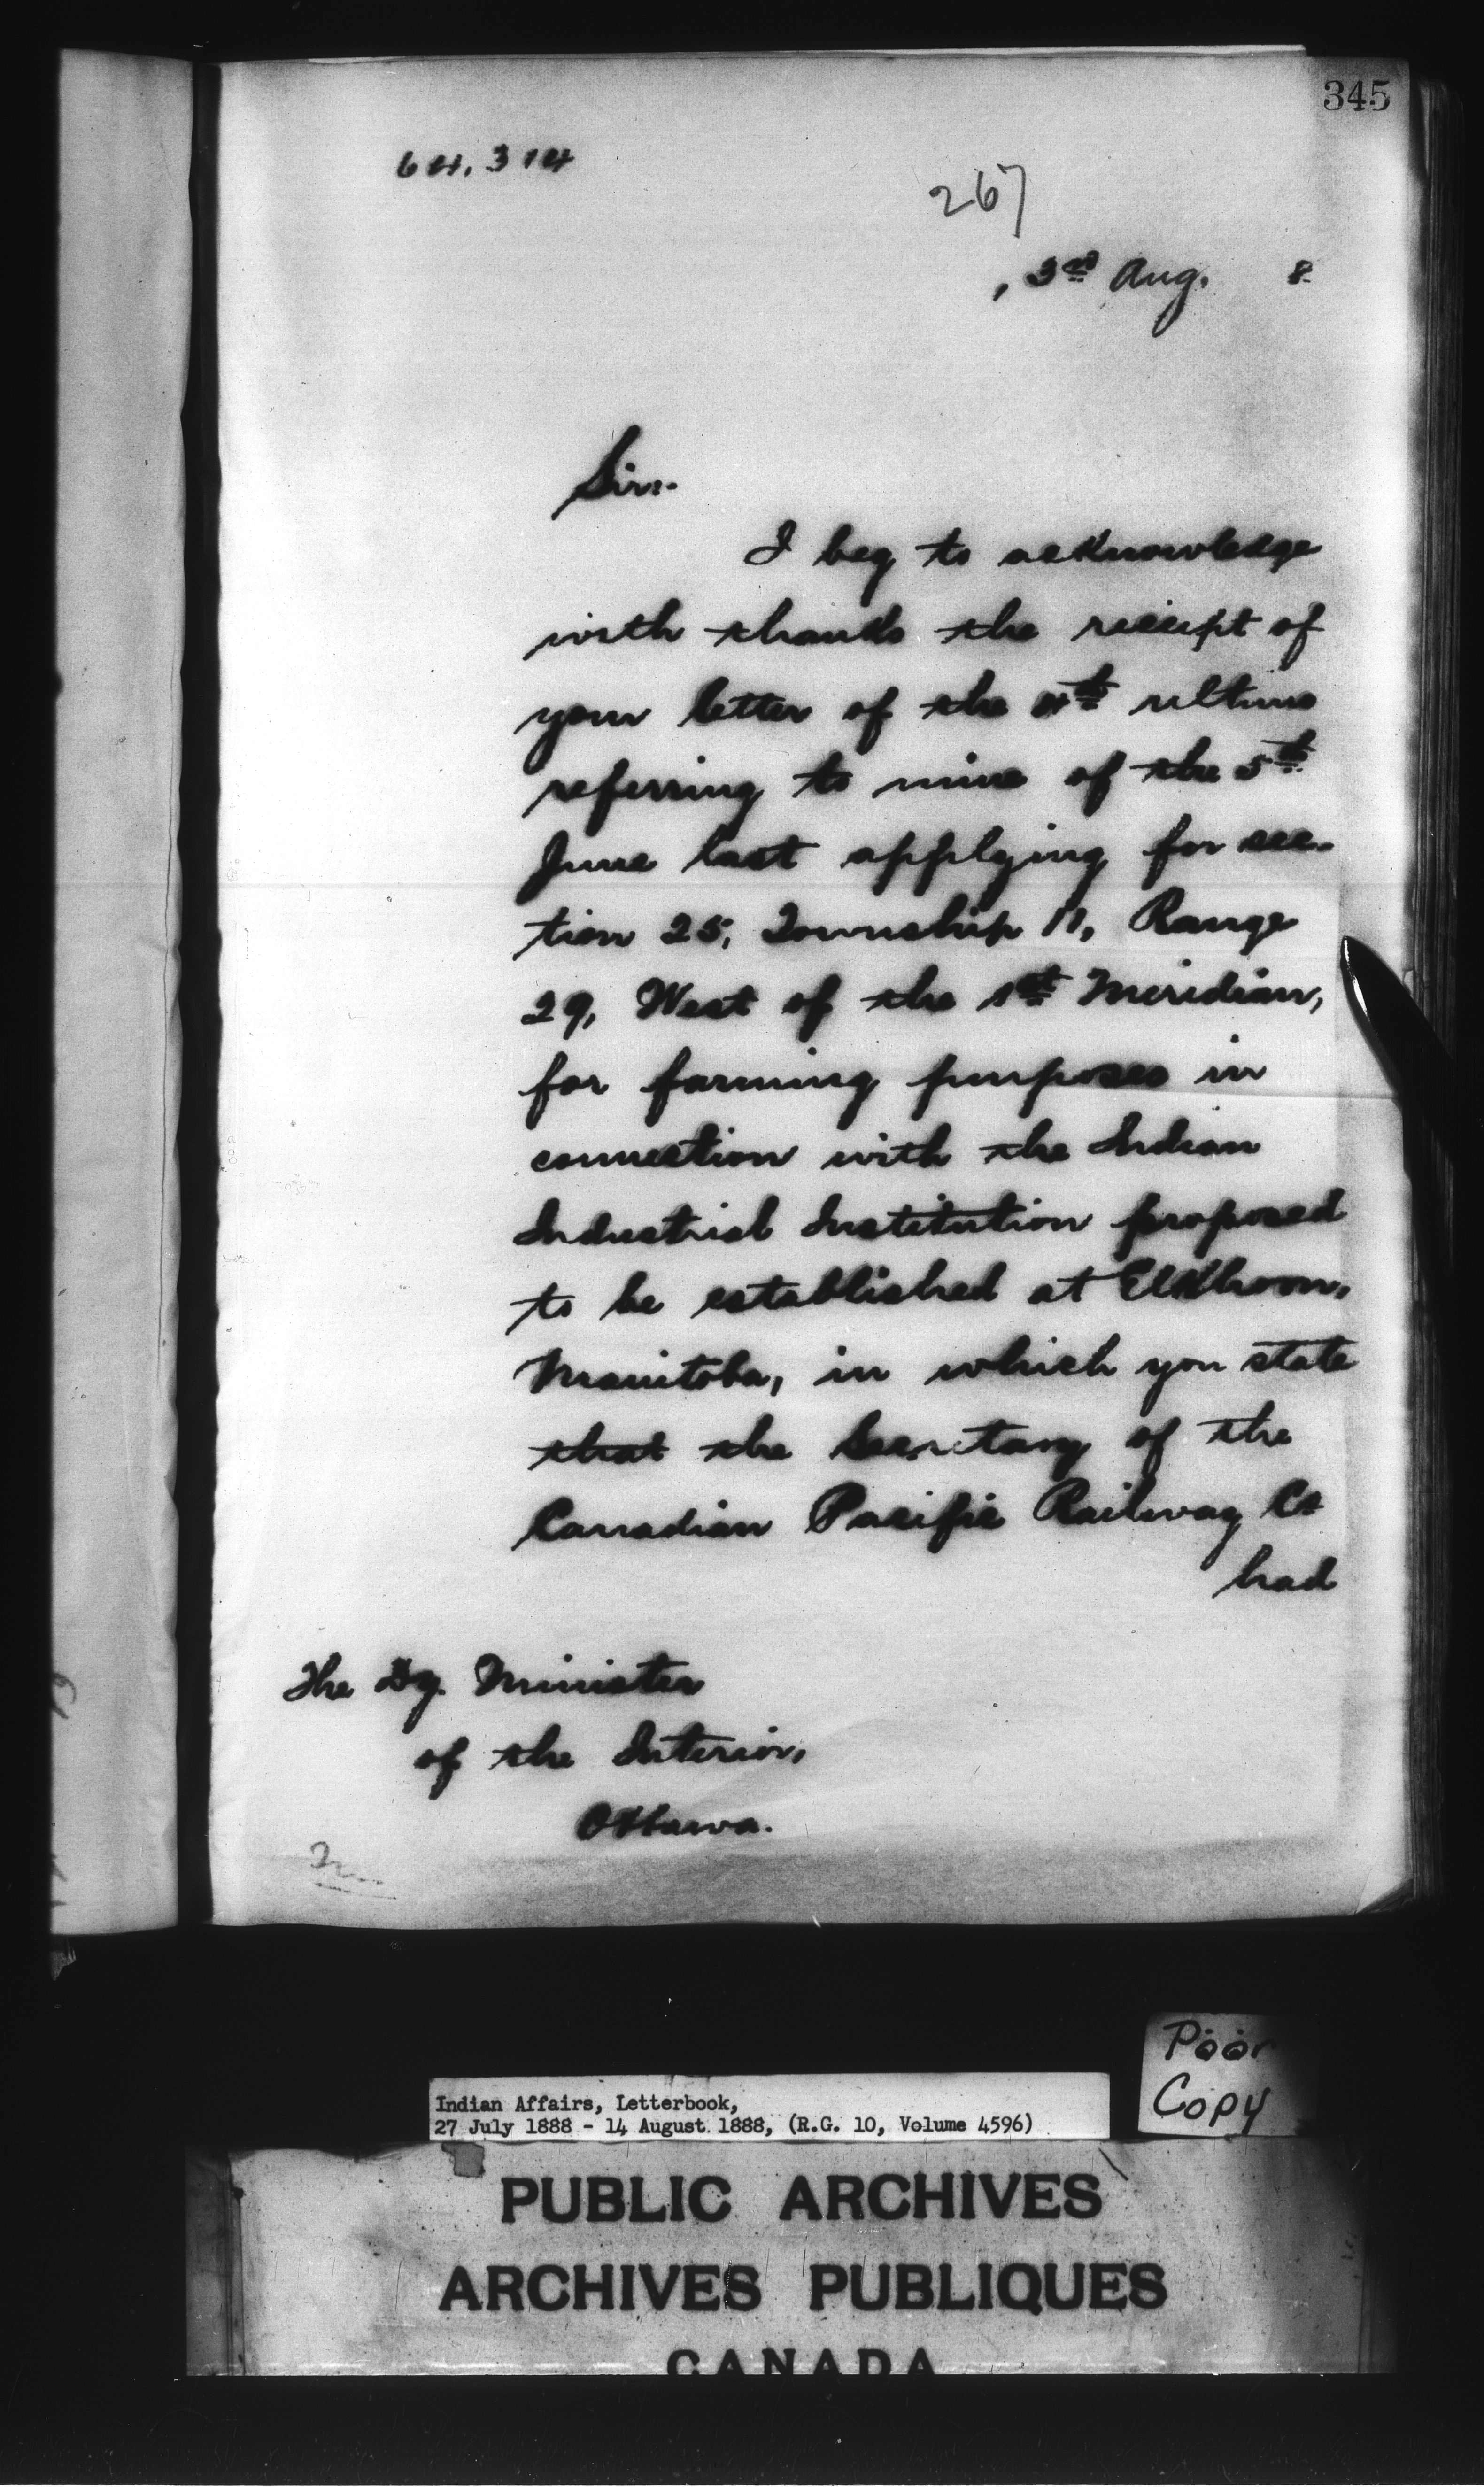 345
64.314
267
, 3rd Aug. 8
Sir:-
I beg to acknowledge
with thanks the receipt of
your letter of the ultimo
referring to mine of the 5th
June last applying for sec-
tion 25, Township 11, Range
29, West of the 1st Meridian,
for farming purposes in
connection with the Indian
Industrial Institution proposed
to be established at Elkhorn,
Manitoba, in which you state
that the Secretary of the
Canadian Pacific Railway Co
had
The Dy. Minister
of the Interior,
Ottawa.
Poor
Copy
Indian Affairs, Letterbook,
27 July 1888 - 14 August 1888, (R.G. 10, Volume 4596)
PUBLIC ARCHIVES
ARCHIVES PUBLIQUES
CANADA